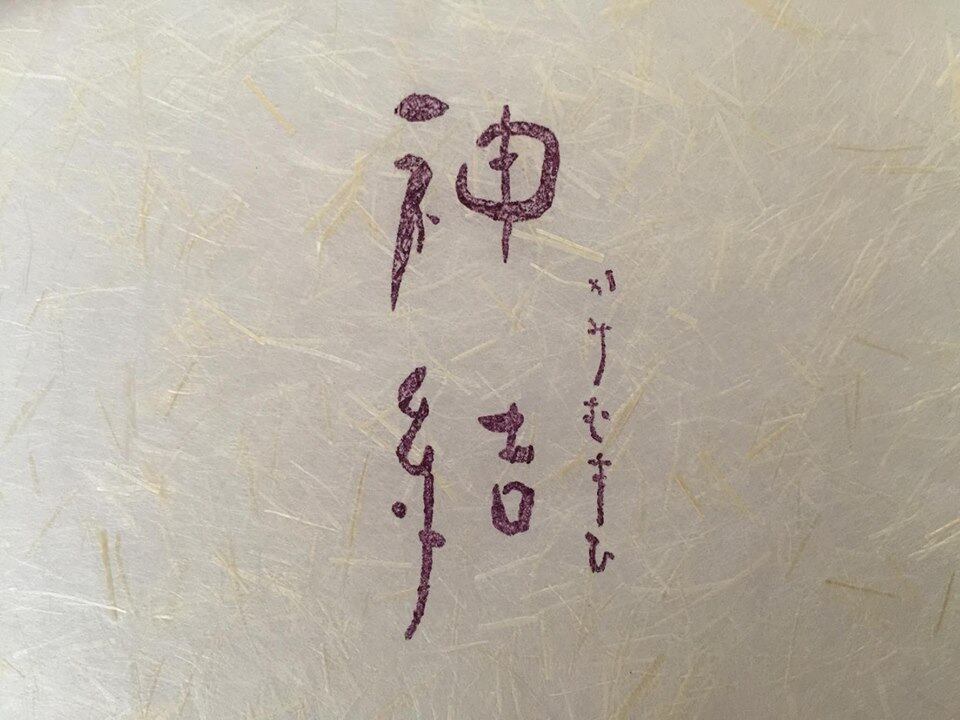 神結
かみむすひ